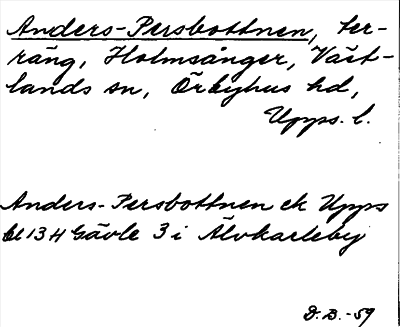 Anders-Persbottnen, ter-
räng, Holmsånger, Väst-
lands sn, Örbyhus hd,
Upps. l.
Anders-Persbottnen ek Upps
bl 13H Gävle 3 i Älvkarleby
D.B.-59